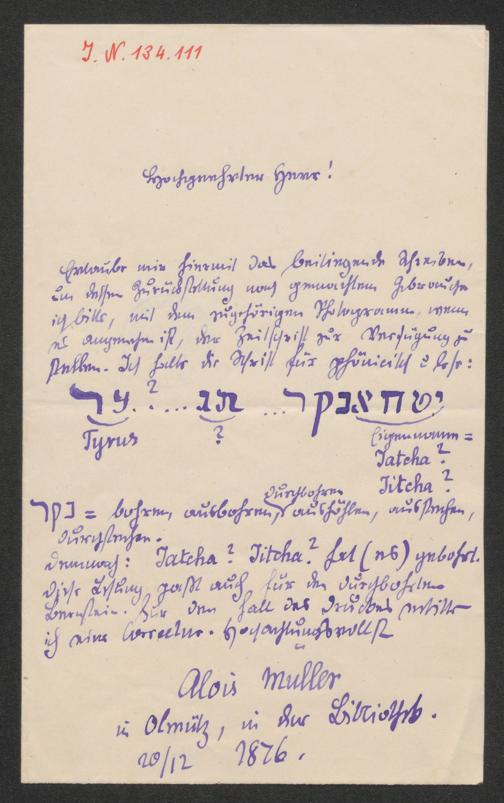 J. N. 134.111
Hochgeehrter Herr!
Erlaube mir hiermit das beiliegende Schreiben,
um dessen Zurückstellung nach gemachtem Gebrauche
ich bitte, mit dem zugehörigen Photogramm, wenn
es angenehm ist, der Zeitschrift zur Verfügung zu
stellen. Ich halte die Schrift für phönicisch & lese:
יטחא נקר ... תג ... ?. צר
Tyrus ? Eigenname =
Jatcha?
Jitcha?
נקר = bohren, ausbohren, durchbohren aushöhlen, ausstechen,
durchstechen.
Demnach: Jatcha? Jitcha? hat (es) gebohrt.
Diese Lesung paßt auch für den durchbohrten
Bernstein. Für den Fall des Druckes erbitte
ich eine Correctur. Hochachtungsvollst
Alois Müller
in Olmütz, in der Bibliothek.
20/12 1876.